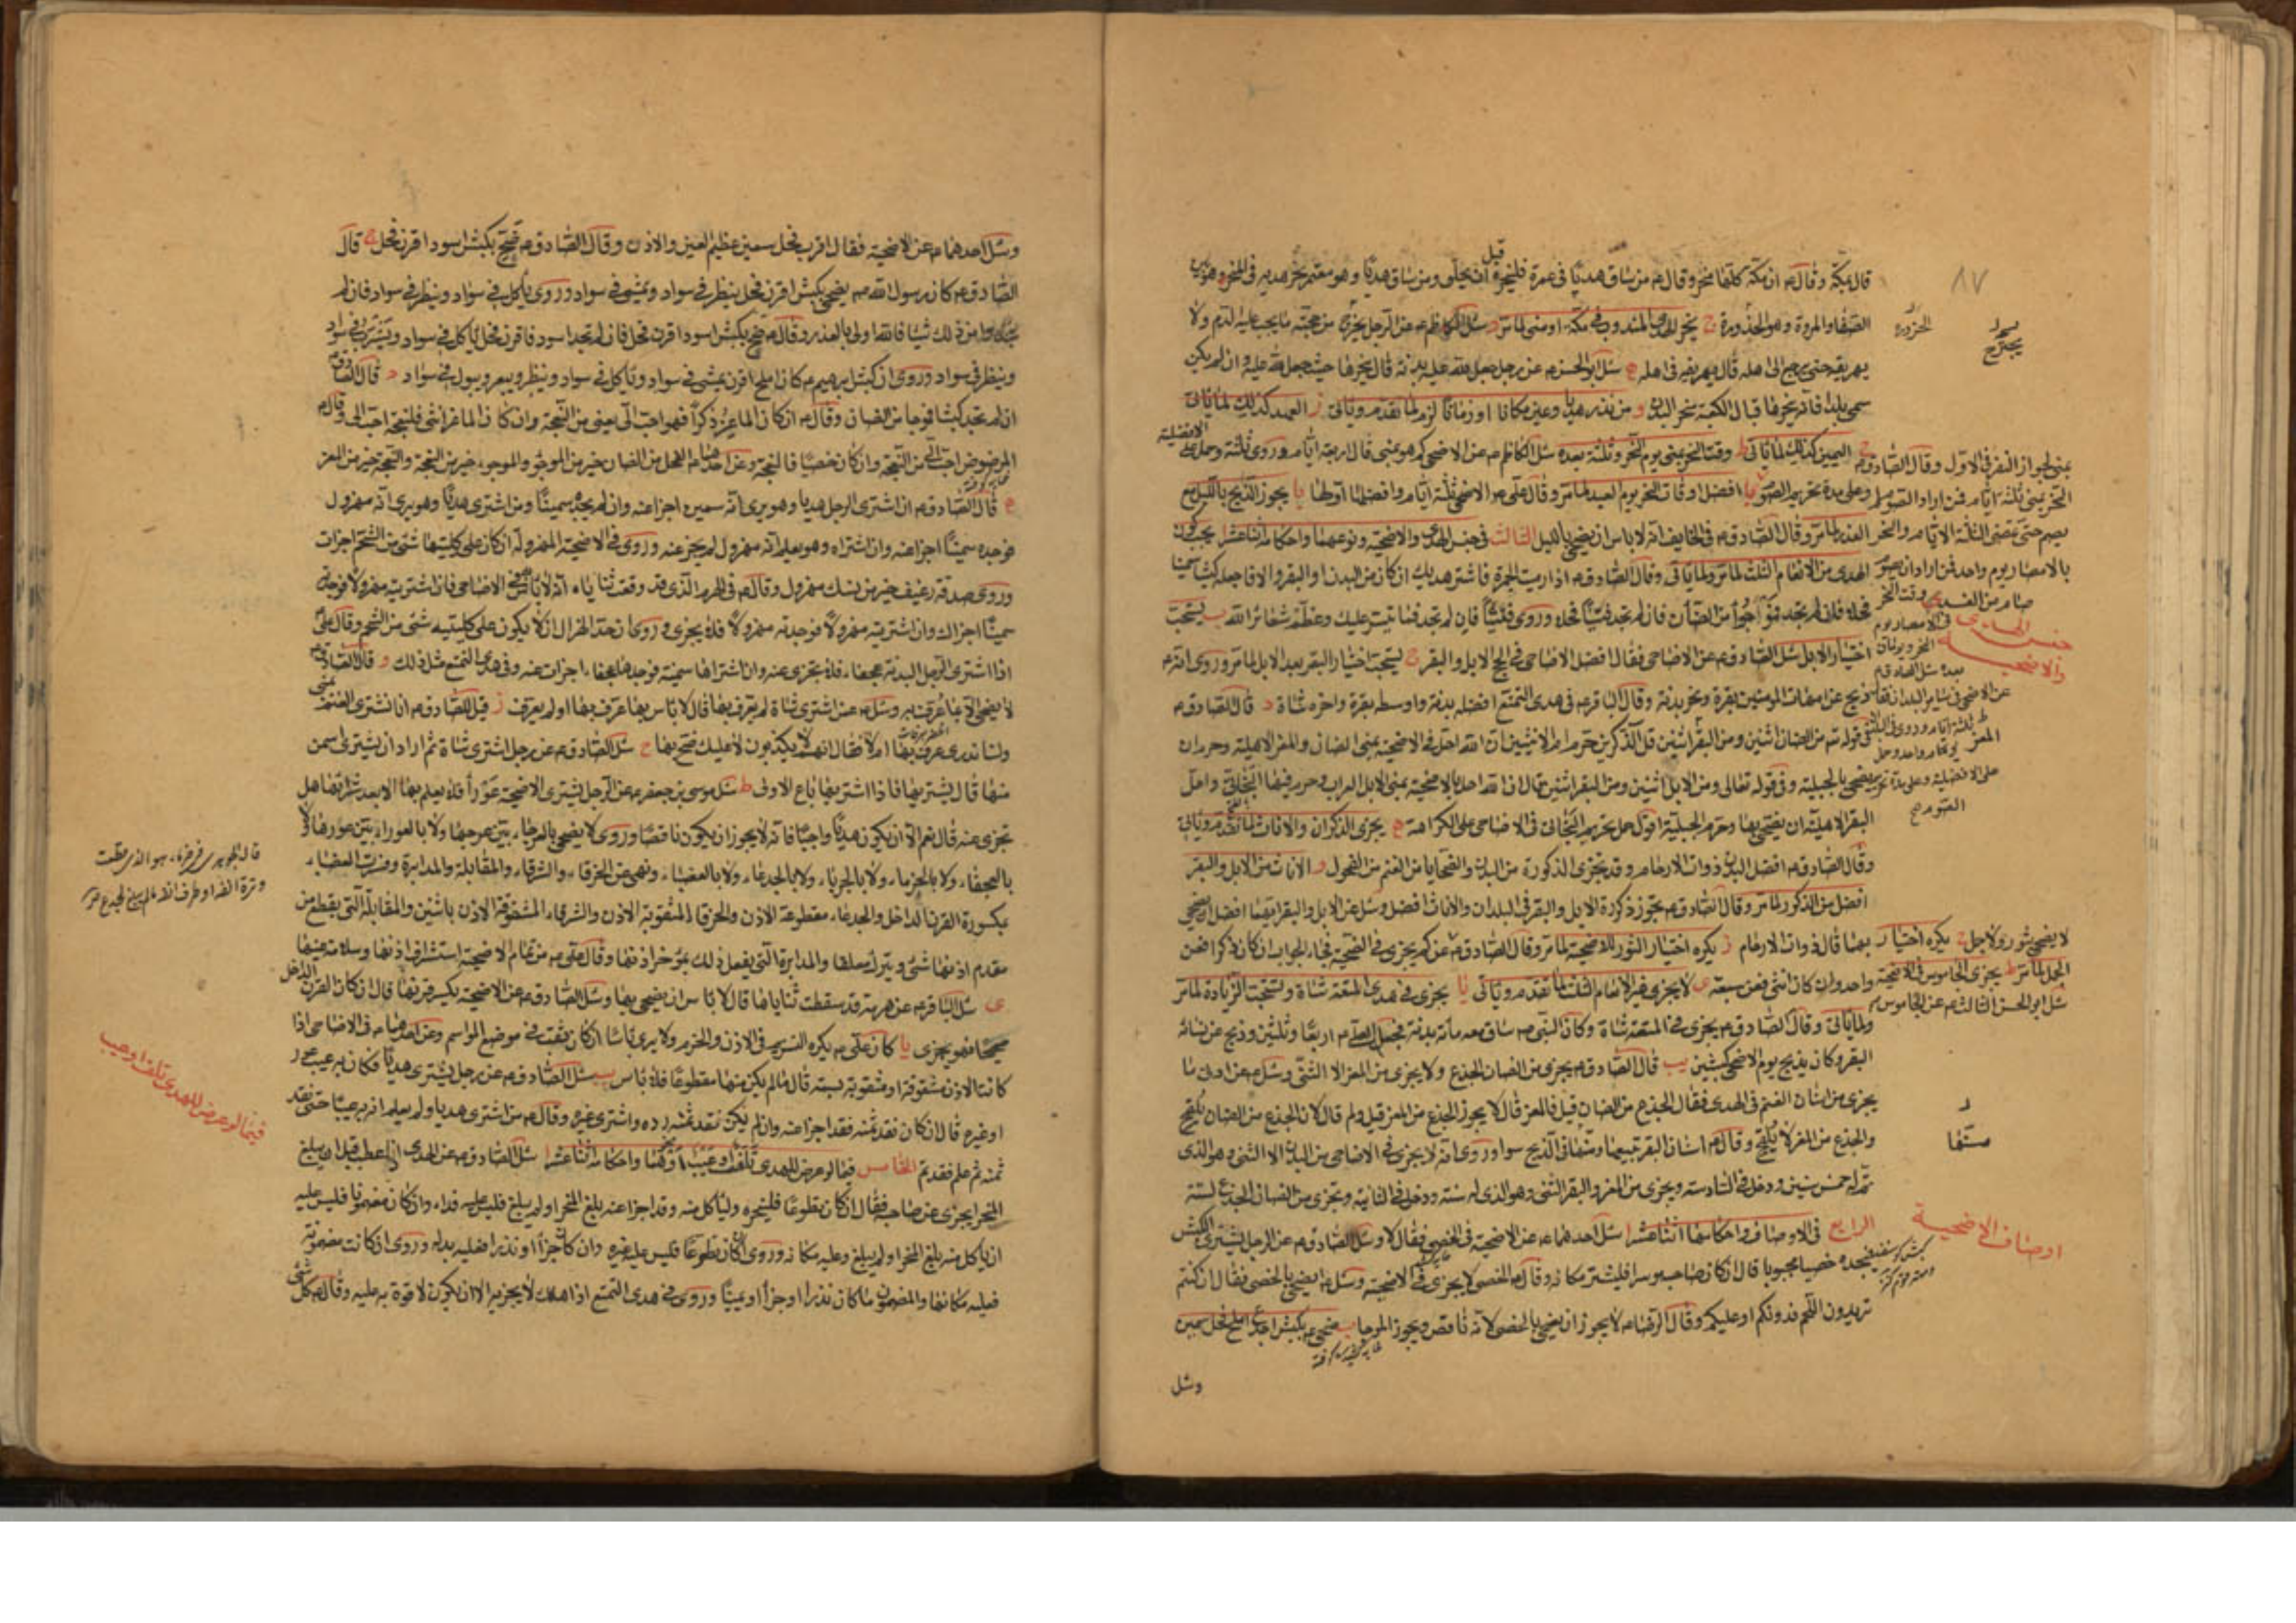 ٨٧
قال بمكة وقال ع ان مكة كلها منحر وقال ع من ساق هديا في عمرة فلينحره قبل ان يحلق ومن ساق هديا وهو معتمر نحر هديه في المنحر وهو بين
الصفا والمروة وهو الحزورة
الحزورة
سئل الكاظم ع عن الرجل يخرج من حجته ما يجب عليه الدم ولا
يهريقه حتى يرجع الى اهله قال يهريقه في اهله سئل ابو الحسن ع عن رجل جعل لله عليه بدنة قال ينحرها حيث جعل لله عليه وان لم يكن
سمى بلدا فانه ينحرها قبال الكعبة منحر البدن و من نذر هديا وعين مكانا او زمانا لزم لما تقدم وياتي ز العهد كذلك لما ياتي
ح اليمين كذلك لما ياتي ط وقت النحر بمنى يوم النحر وثلثة بعده سئل الكاظم ع عن الاضحى كم هو بمنى قال اربعة ايام وروى ثلثة وحمل على
الافضلية
وعلى مدة تحريم الصوم يا افضل اوقات النحر يوم العيد لما مر وقال علي ع الاضحى ثلثة ايام وافضلها اولها يا يجوز الذبح بالليل مع
العذر لما مر وقال الصادق ع في الخايف انه لا باس ان يضحي بالليل الثالث في جنس الهدي والاضحية ونوعهما واحكامه اثنا عشر ا يجب كون
الهدي من الانعام الثلث لما مر ولما ياتي وقال الصادق ع اذا رميت الجمرة فاشتر هديك ان كان من البدن او البقر والا فاجعله كبشا سمينا
فحلا فان لم تجد فموجوءا من الضأن فان لم تجد فتيسا فحلا وروى فتيسا فان لم تجد فما تيسر عليك وعظم شعائر الله ب يستحب
اختيار الابل سئل الصادق ع عن الاضاحي فقال افضل الاضاحي في الحج الابل والبقر ج يستحب اختيار البقر بعد الابل لما مر وروى انه ع
ذبح عن امهات المؤمنين بقرة ونحر بدنة وقال الباقر ع في هدي التمتع افضله بدنة واوسطه بقرة واخره شاة د قال الصادق ع
في قوله تع من الضان اثنين ومن المعز اثنين قل آلذكرين حرم ام الانثيين ان الله احل في الاضحية بمنى الضان والمعز الاهلية وحرم ان
يضحي بالجبلية وفي قوله تعالى ومن الابل اثنين ومن البقر اثنين قال ان الله احل بالاضحية بمنى الابل العراب وحرم فيها البخاتي واحل
البقر الاهلية ان يضحى بها وحرم الجبلية اقول حمل تحريم البخاتي في الاضاحي على الكراهة ه يجزي الذكران والاناث لما تقدم وياتي
وقال الصادق ع افضل البدن ذوات الارحام وقد تجزي الذكورة من البدن والضحايا من الغنم من الفحول و الاناث من الابل والبقر
افضل من الذكور لما مر وقال الصادق ع تجوز ذكورة الابل والبقر في البلدان والاناث افضل وسئل عن الابل والبقر ايهما افضل ان يضحى
بهما قال ذوات الارحام ز يكره اختيار الثور للاضحية لما مر وقال الصادق ع
لا يضحي بثور ولا جمل ح يكره اختيار
الجمل لما مر ط يجزي الجاموس في الاضحية
سئل ابو الحسن الثالث ع عن الجاموس
عن كم يجزي في الضحية فجاء الجواب ان كان ذكرا فعن
واحد وان كان انثى فعن سبعة ى لا يجزي غير الانعام الثلث لما تقدم وياتي يا يجزي في هدي المتعة شاة وتستحب الزيادة لما مر
ولما ياتي وقال الصادق ع يجزي في المتعة شاة وكان النبي ص ساق معه مأة بدنة فجعل لعلي ع اربعا وثلثين وذبح عن نسائه
البقر وكان يذبح يوم الاضحى كبشين يب قال الصادق ع يجزي من الضان الجذع ولا يجزي من المعز الا الثني وسئل ع عن ادنى ما
يجزي من اسنان الغنم في الهدي فقال الجذع من الضان قيل فالمعز قال لا يجوز الجذع من المعز قيل ولم قال لان الجذع من الضان يلقح
والجذع من المعز لا يلقح وقال ع اسنان البقر تبيعها ومسنها في الذبح سواء وروى انه لا يجزي في الاضاحي من البدن الا الثني وهو الذي
مسنها
تم له خمس سنين ودخل في السادسة ويجزي من المعز والبقر الثني وهو الذي له سنة ودخل في الثانية ويجزي من الضان الجذع لسنة
اوصاف الاضحية
الرابع في الاوصاف واحكامها اثنا عشر ا سئل احدهما ع عن الاضحية في الخصي فقال لا وسئل الصادق ع عن الرجل يشتري الكبش
فيجده خصيا مجبوبا قال ان كان صاحبه موسرا فليشتر مكانه وقال ع الخصي لا يجزي في الاضحية وسئل ع ايضحي بالخصي فقال ان كنتم
تريدون اللحم فدونكم او عليكم وقال الرضا ع لا يجوز ان يضحي بالخصي لانه ناقص ويجوز الموجأ ب ضحى ع بكبش اجذع املح فحل سمين
وسئل
وسئل احدهما ع عن الاضحية فقال اقرن فحل سمين عظيم العين والاذن وقال الصادق ع ضح بكبش اسود اقرن فحل ج قال
الصادق ع كان رسول الله ص يضحي بكبش اقرن فحل ينظر في سواد ويمشي في سواد وروى ياكل في سواد وينظر في سواد فان لم
تجدوا من ذلك شيئا فالله اولى بالعذر وقال ع ضح بكبش اسود اقرن فحل فان لم تجد اسود فاقرن فحل ياكل في سواد ويشرب في سواد
وينظر في سواد وروى ان كبش ابرهيم ع كان املح اقرن يمشي في سواد وياكل في سواد وينظر ويبعر ويبول في سواد د قال الصادق ع
ان لم تجد كبشا فموجأ من الضان وقال ع ان كان الماعز ذكرا فهو احب الي يعني من النعجة وان كان الماعز انثى فالنعجة احب الي وقال ع
المرضوض احب الي من النعجة وان كان خصيا فالنعجة وعن احدهما ع الفحل من الضان خير من الموجؤ والموجوء خير من النعجة والنعجة خير من المعز
ه قال الصادق ع ان اشترى الرجل هديا وهو يرى انه سمين اجزأ عنه وان لم يجده سمينا ومن اشترى هديا وهو يرى انه مهزول
فوجده سمينا اجزأ عنه وان اشتراه وهو يعلم انه مهزول لم يجز عنه وروى في الاضحية المهزولة ان كان على كليتيها شئ من الشحم اجزأت
وروى صدقة رغيف خير من نسك مهزول وقال ع في الهرم الذي قد وقعت ثناياه انه لا باس في الاضاحي فان اشتريته مهزولا فوجدته
سمينا اجزأك وان اشتريته مهزولا فوجدته مهزولا فلا يجزي وروى ان حد الهزال ان لا يكون على كليتيه شئ من الشحم وقال علي ع
اذا اشترى الرجل البدنة عجفاء فلا تجزي عنه وان اشتراها سمينة فوجدها عجفاء اجزأت عنه وفي هدي التمتع مثل ذلك و قال الصادق ع
لا يضحى الا بما عرف به وسئل ع عمن اشترى شاة لم يعرف بها قال لا باس بها عرف بها او لم يعرف ز قيل للصادق ع انا نشتري الغنم بمنى
ولسنا ندري عرف بها ام لا فقال انهم لا يكذبون لا عليك ضح بها ح سئل الصادق ع عن رجل اشترى شاة ثم اراد ان يشتري اسمن
منها قال يشتريها فاذا اشتريها باع الاولى ط سئل موسى بن جعفر ع عن الرجل يشتري الاضحية عوراء فلا يعلم بها الا بعد شرائها هل
تجزي عنه قال نعم الا ان يكون هديا واجبا فانه لا يجوز ان يكون ناقصا وروى لا يضحى بالعرجاء بين عرجها ولا بالعوراء بين عورها ولا
بالعجفاء ولا بالخرماء ولا بالجرباء ولا بالجدعاء ولا بالعضباء ونهى عن الخرقاء والشرقاء والمقابلة والمدابرة وفسرت العضباء
بمكسورة القرن الداخل والجدعاء مقطوعة الاذن والخرقاء المثقوبة الاذن والشرقاء المشقوقة الاذن باثنين والمقابلة التي يقطع من
مقدم اذنها شئ ويترك معلقا والمدابرة التي يفعل ذلك بمؤخر اذنها وقال علي ع من تمام الاضحية استشراف اذنها وسلامة عينها
ى سئل الباقر ع عن هرمة قد سقطت ثناياها قال لا باس ان يضحى بها وسئل الصادق ع عن الاضحية يكسر قرنها قال ان كان القرن الداخل
صحيحا فهو يجزي يا كان علي ع يكره التشريم في الاذن والخرم ولا يرى باسا ان كان ثقب في موضع المواسم وعن احدهما ع في الاضاحي اذا
كانت الاذن مشقوقة او مثقوبة بسمة قال ما لم يكن منها مقطوعا فلا باس يب سئل الصادق ع عن رجل يشتري هديا فكان به عيب عور
او غيره قال ان كان نقد ثمنه فقد اجزأ عنه وان لم يكن نقد ثمنه رده واشترى غيره وقال ع من اشترى هديا ولم يعلم انه به عيبا حتى نقد
ثمنه ثم علم فقد تم الخامس فيما لو عرض للهدي تلف او عيب او نحوهما واحكامه اثنا عشر ا سئل الصادق ع عن الهدي اذا عطب قبل ان يبلغ
المنحر ايجزي عن صاحبه فقال ان كان تطوعا فلينحره ولياكل منه وقد اجزأ عنه بلغ المنحر او لم يبلغ فليس عليه فداء وان كان مضمونا فليس عليه
ان ياكل منه بلغ المنحر او لم يبلغ وعليه مكانه وروى ان كان تطوعا فليس عليه غيره وان كان جزاء او نذرا فعليه بدله وروى ان كانت مضمونة
فعليه مكانها والمضمون ما كان نذرا او جزاء او يمينا وروى في هدي التمتع اذا هلك لا يجزيه الا ان يكون لا قوة به عليه وقال ع كل شئ
فيما لو عرض للهدي تلف او عيب